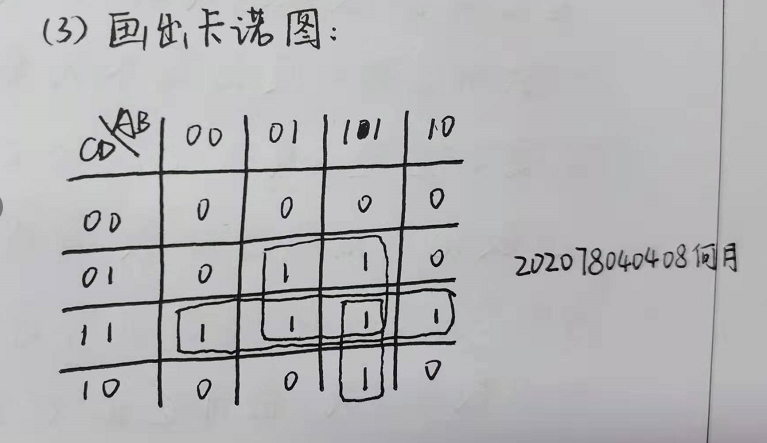 (3) 画出卡诺图:
CD\AB 00 01 11 10
00 0 0 0 0
01 0 1 1 0
11 1 1 1 1
10 0 0 1 0
202078040408何月